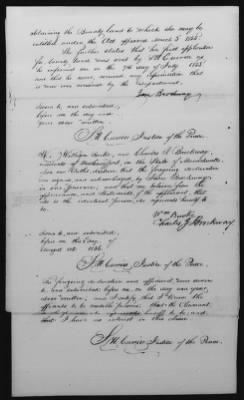 obtaining the Bounty Land to which she may be
entitled under the Act approved March 3d 1855.
She further states that her first application
for bounty Land was sent by S. H. Currier Esq
on the 7th day of July 1855
and that he never received any information that
it was ever received by the Department.
Brockway
Sworn to, and subscribed,
before me the day and
year above written.
S. H. Currier Justice of the Peace.
We, William and Charles J. Brockway,
residents of in the State of
on Oath, declare that the foregoing declaration
was signed and acknowledged by Brockway
in our presence, and that we believe from the
appearance, and statements of the applicant, that
she is the identical person, she represents herself to
be.
Wm
Charles J Brockway
Sworn to, and subscribed,
before me this day of
August AD. 1856.
S. H. Currier Justice of the Peace.
The foregoing declaration and affidavit, were sworn
to, and subscribed, before me, on the day, and year
above written; and I certify, that I know the
affiants to be credible persons; that the claimant
is the person she represents herself to be, and
that I have no interest in this claim.
S. H. Currier Justice of the Peace.